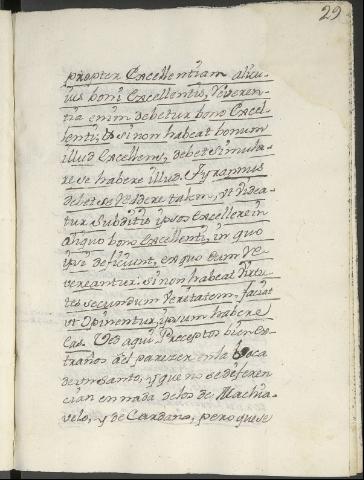 29
propter Excellentiam alicu-
ius boni Excellentis, Reveren-
tia enim debetur bono Excel-
lenti, & si non habeat bonum
illud Excellens, debet simula-
re se habere illud. Tyrannus
debet se reddere talem, ut videa-
tur Subditis ipsos Excellere in
aliquo bono Excellenti, in quo
ipsi deficiunt, ex quo eum re-
vereantur: si non habeat Virtu-
tes secundum Veritatem, faciat
ut Opinentur, ipsum habere
eas. Ved aqui Preceptos bien Es-
traños àl parezer en la boca
de un Santo, y que no se diferen
cian en nada de los de Machia-
velo, y de Cardano, pero que se